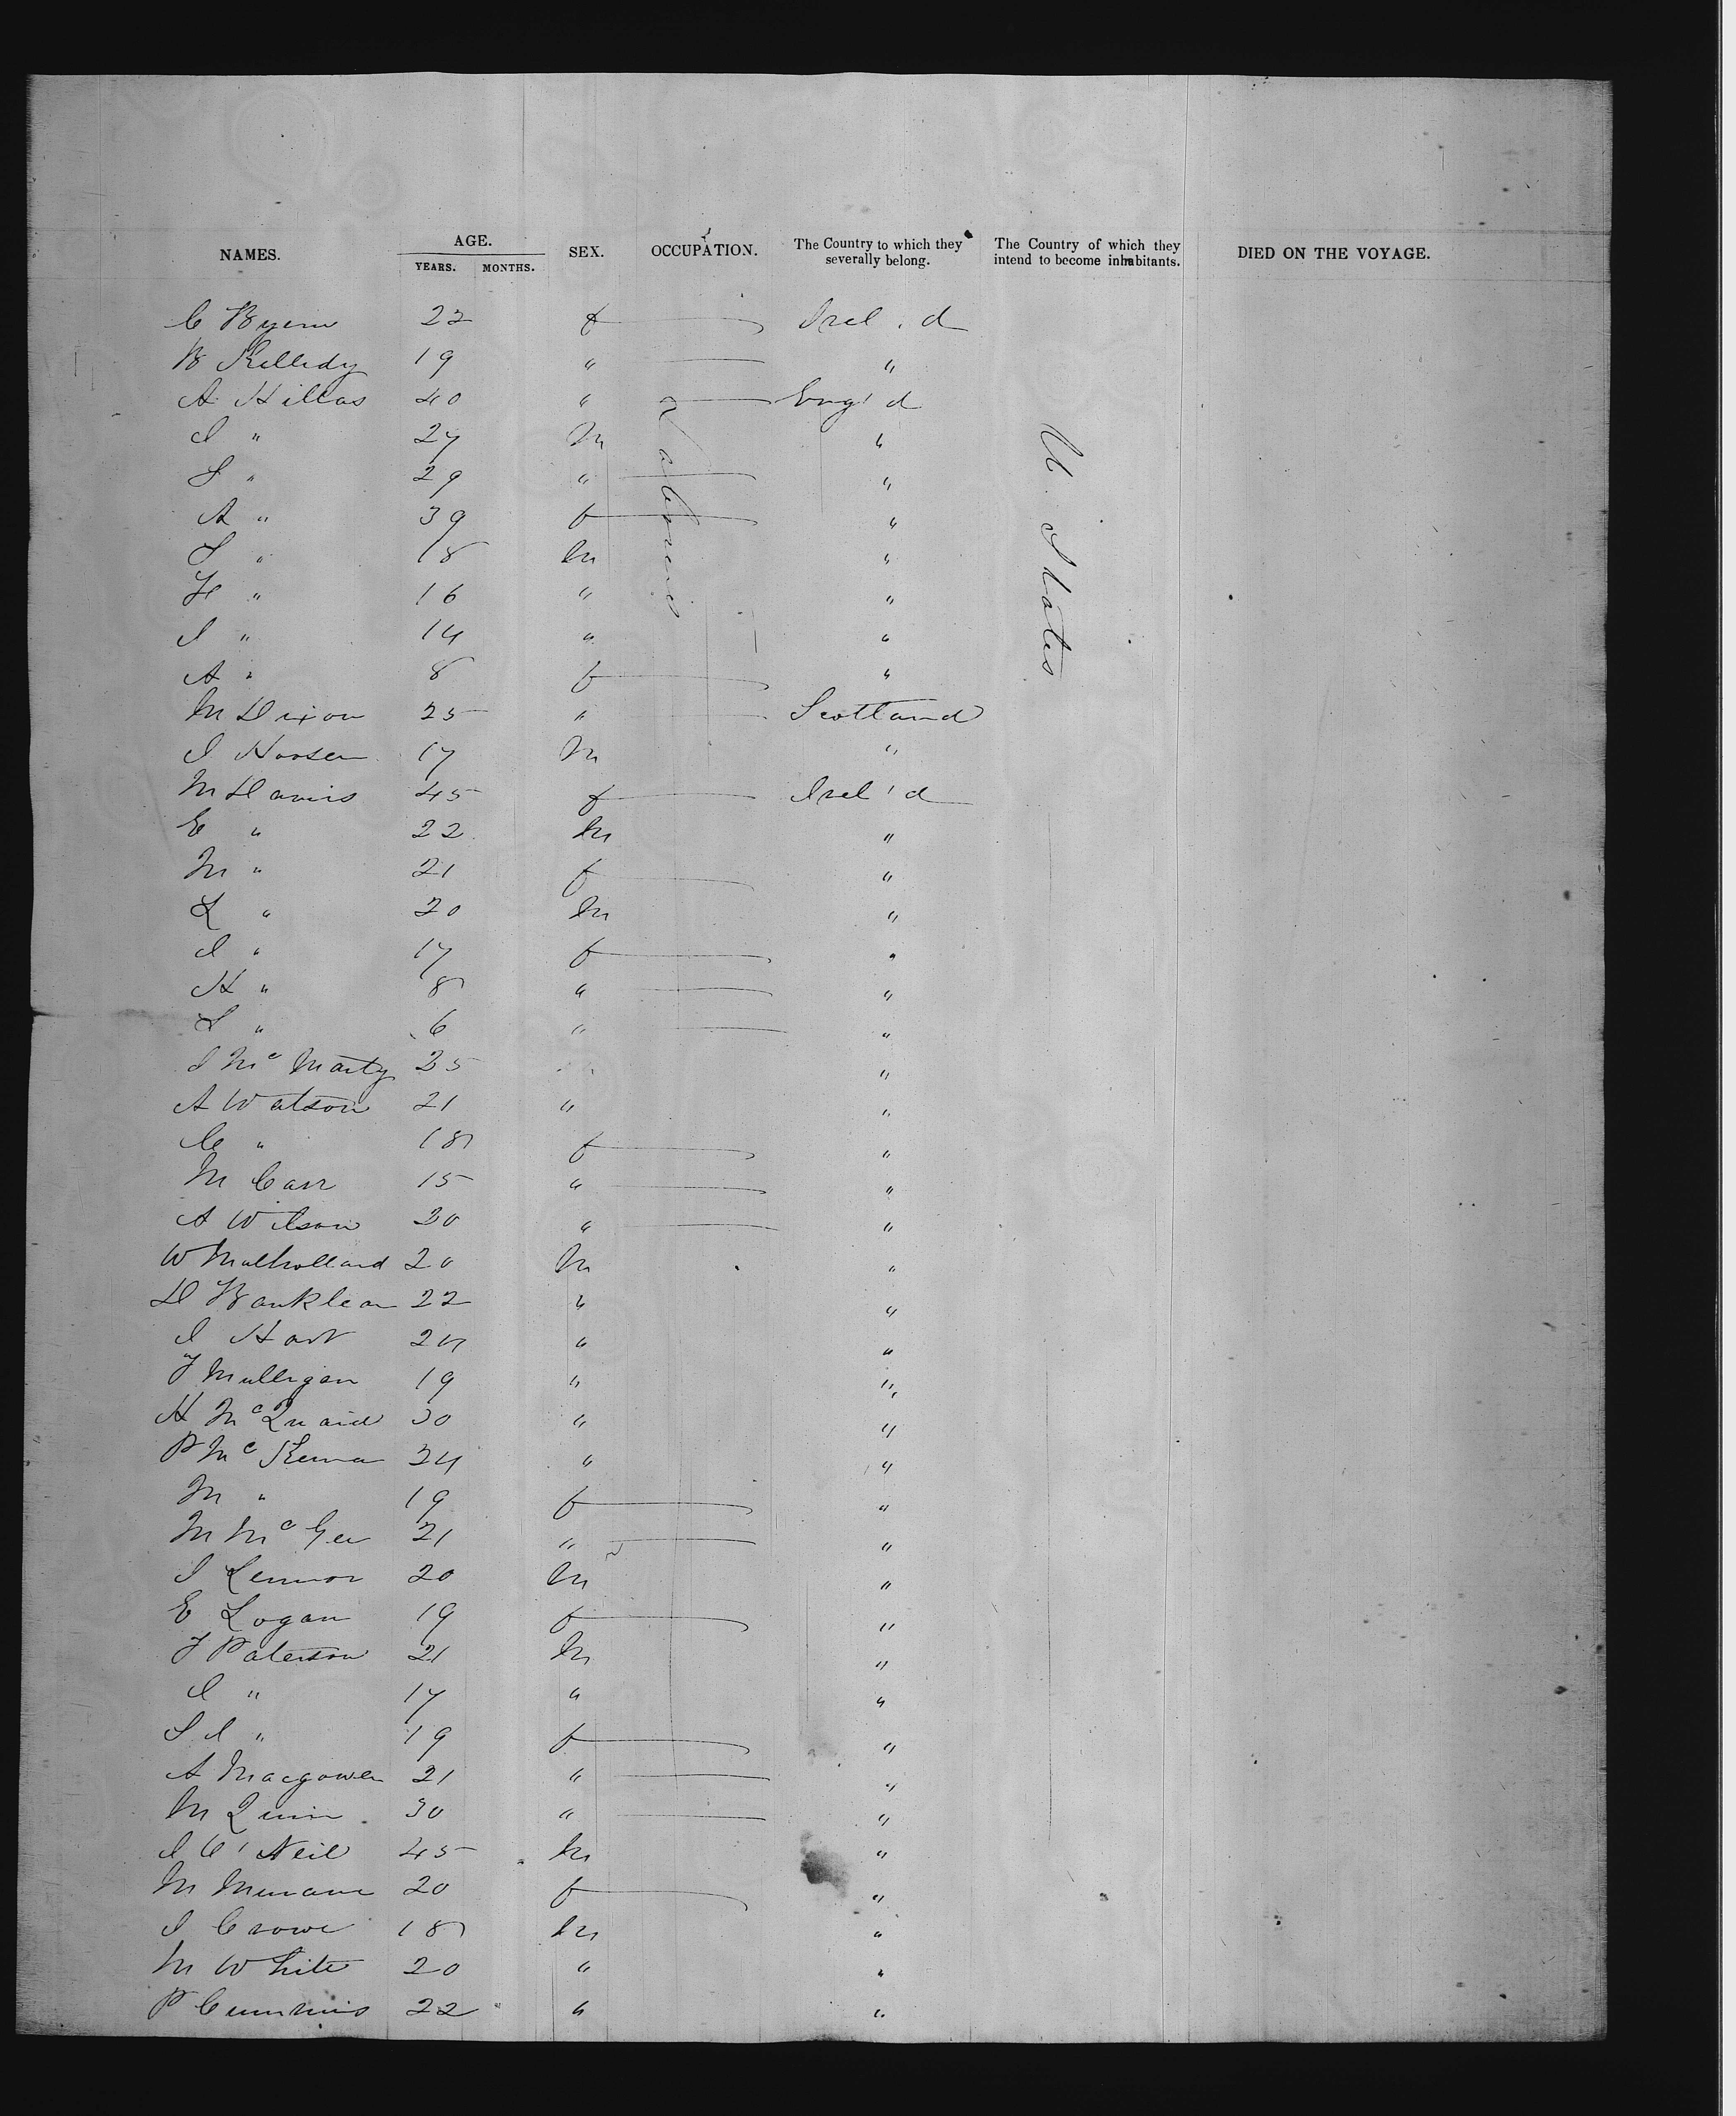 NAMES. AGE. SEX. OCCUPATION. The Country to which they severally belong. The Country of which they intend to become inhabitants. DIED ON THE VOYAGE.
YEARS. MONTHS.
C 22 f Irel'd
B Kelledy 19 " "
A Hillas 40 " Eng'd
I " 27 M "
S " 29 " "
A " 39 f "
S " 18 M "
H " 16 " "
I " 14 " "
A " 8 f "
M Dixon 25 " Scotland
I 17 M "
M Davis 45 f Irel'd
E " 22 M "
M " 21 f "
L " 20 M "
I " 17 f "
H " 8 " "
S " 6 " "
I Mc Marty 25 "
A Watson 21 " "
C " 18 f "
M Carr 15 " "
A Wilson 30 " "
W Mulholland 20 M "
D 22 " "
I Hart 24 " "
J Mulligan 19 " "
H McQuaid 30 " "
P Mc Kenna 34 " "
M " 19 f "
M McGee 21 " "
I Lennon 20 M "
E Logan 19 f "
J Paterson 21 M "
I " 17 " "
S I " 19 f "
A Macgowen 21 " "
M Quin 30 " "
I O'Neil 45 M "
M 20 f "
I Crowe 18 M "
M White 20 " "
P Cummins 22 " "
Laborers
U. States